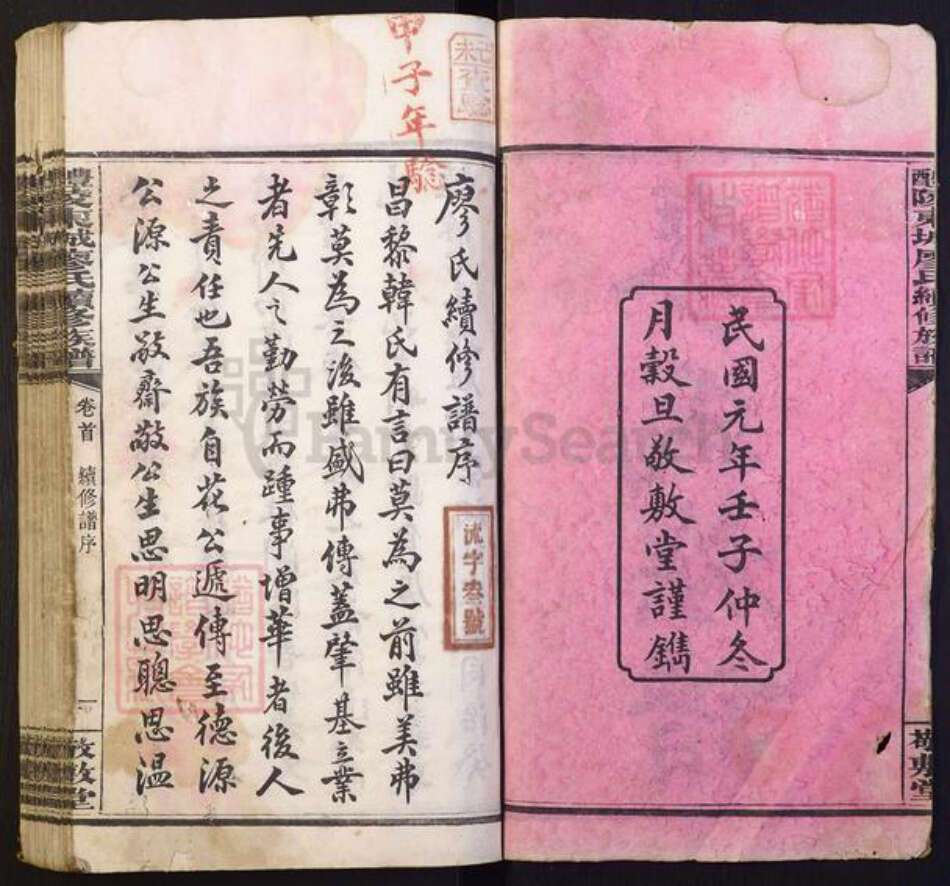 民國元年壬子仲冬
月穀旦敬敷堂謹鐫
醴陵東城廖氏續修族譜
敬敷堂
甲子年驗
廖氏續修譜序
流字叁號
昌黎韓氏有言曰莫為之前雖美弗
彰莫為之後雖盛弗傳蓋肇基立業
者先人之勤勞而踵事增華者後人
之責任也吾族自花公遞傳至德源
公源公生敬齋敬公生思明思聰思温
醴陵東城廖氏續修族譜
卷首 續修譜序
一
敬敷堂
FamilySearch